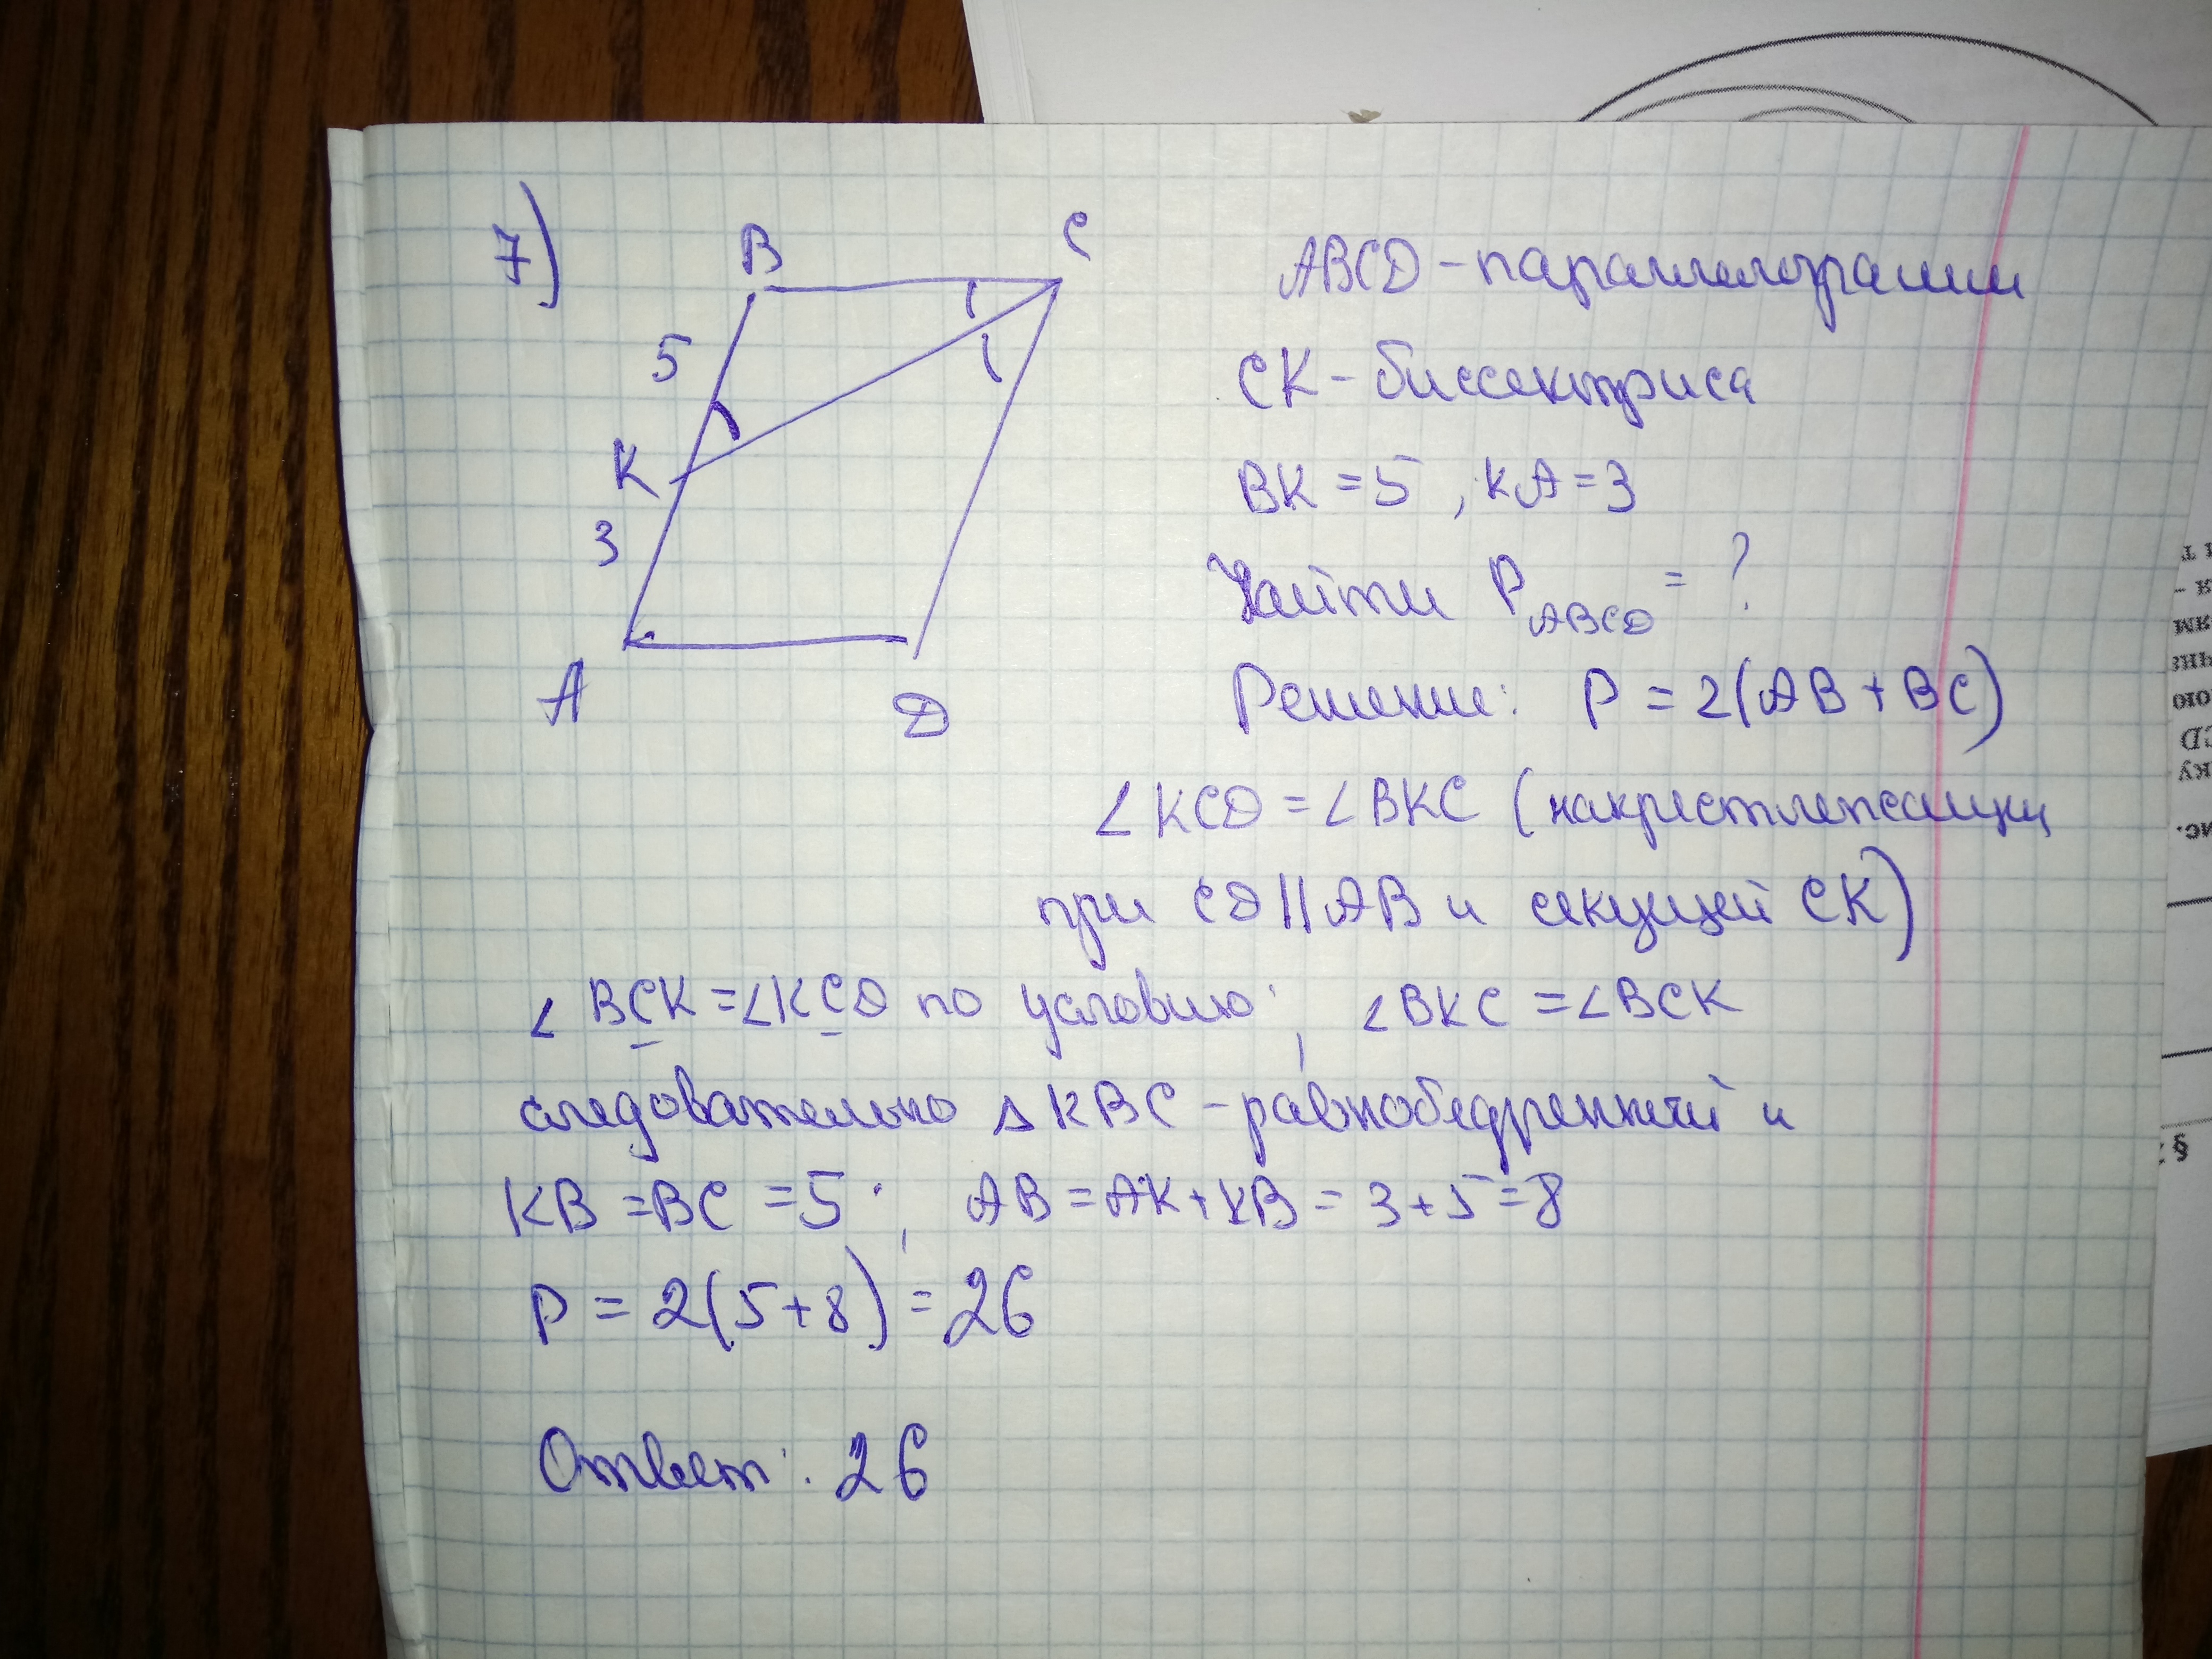 7)
B
C
5
K
3
A
D
ABCD - параллелограмм
CK - биссектриса
BK = 5 , KA = 3
Найти P ABCD = ?
Решение: P = 2(AB + BC)
∠KCD = ∠BKC (накрестлежащи
при CD || AB и секущей CK)
∠ BCK = ∠KCD по условию ; ∠BKC = ∠BCK
следовательно Δ KBC - равнобедренный и
KB = BC = 5 ; AB = AK + KB = 3 + 5 = 8
P = 2(5+8) = 26
Ответ: 26
CD
ку
ис.
§